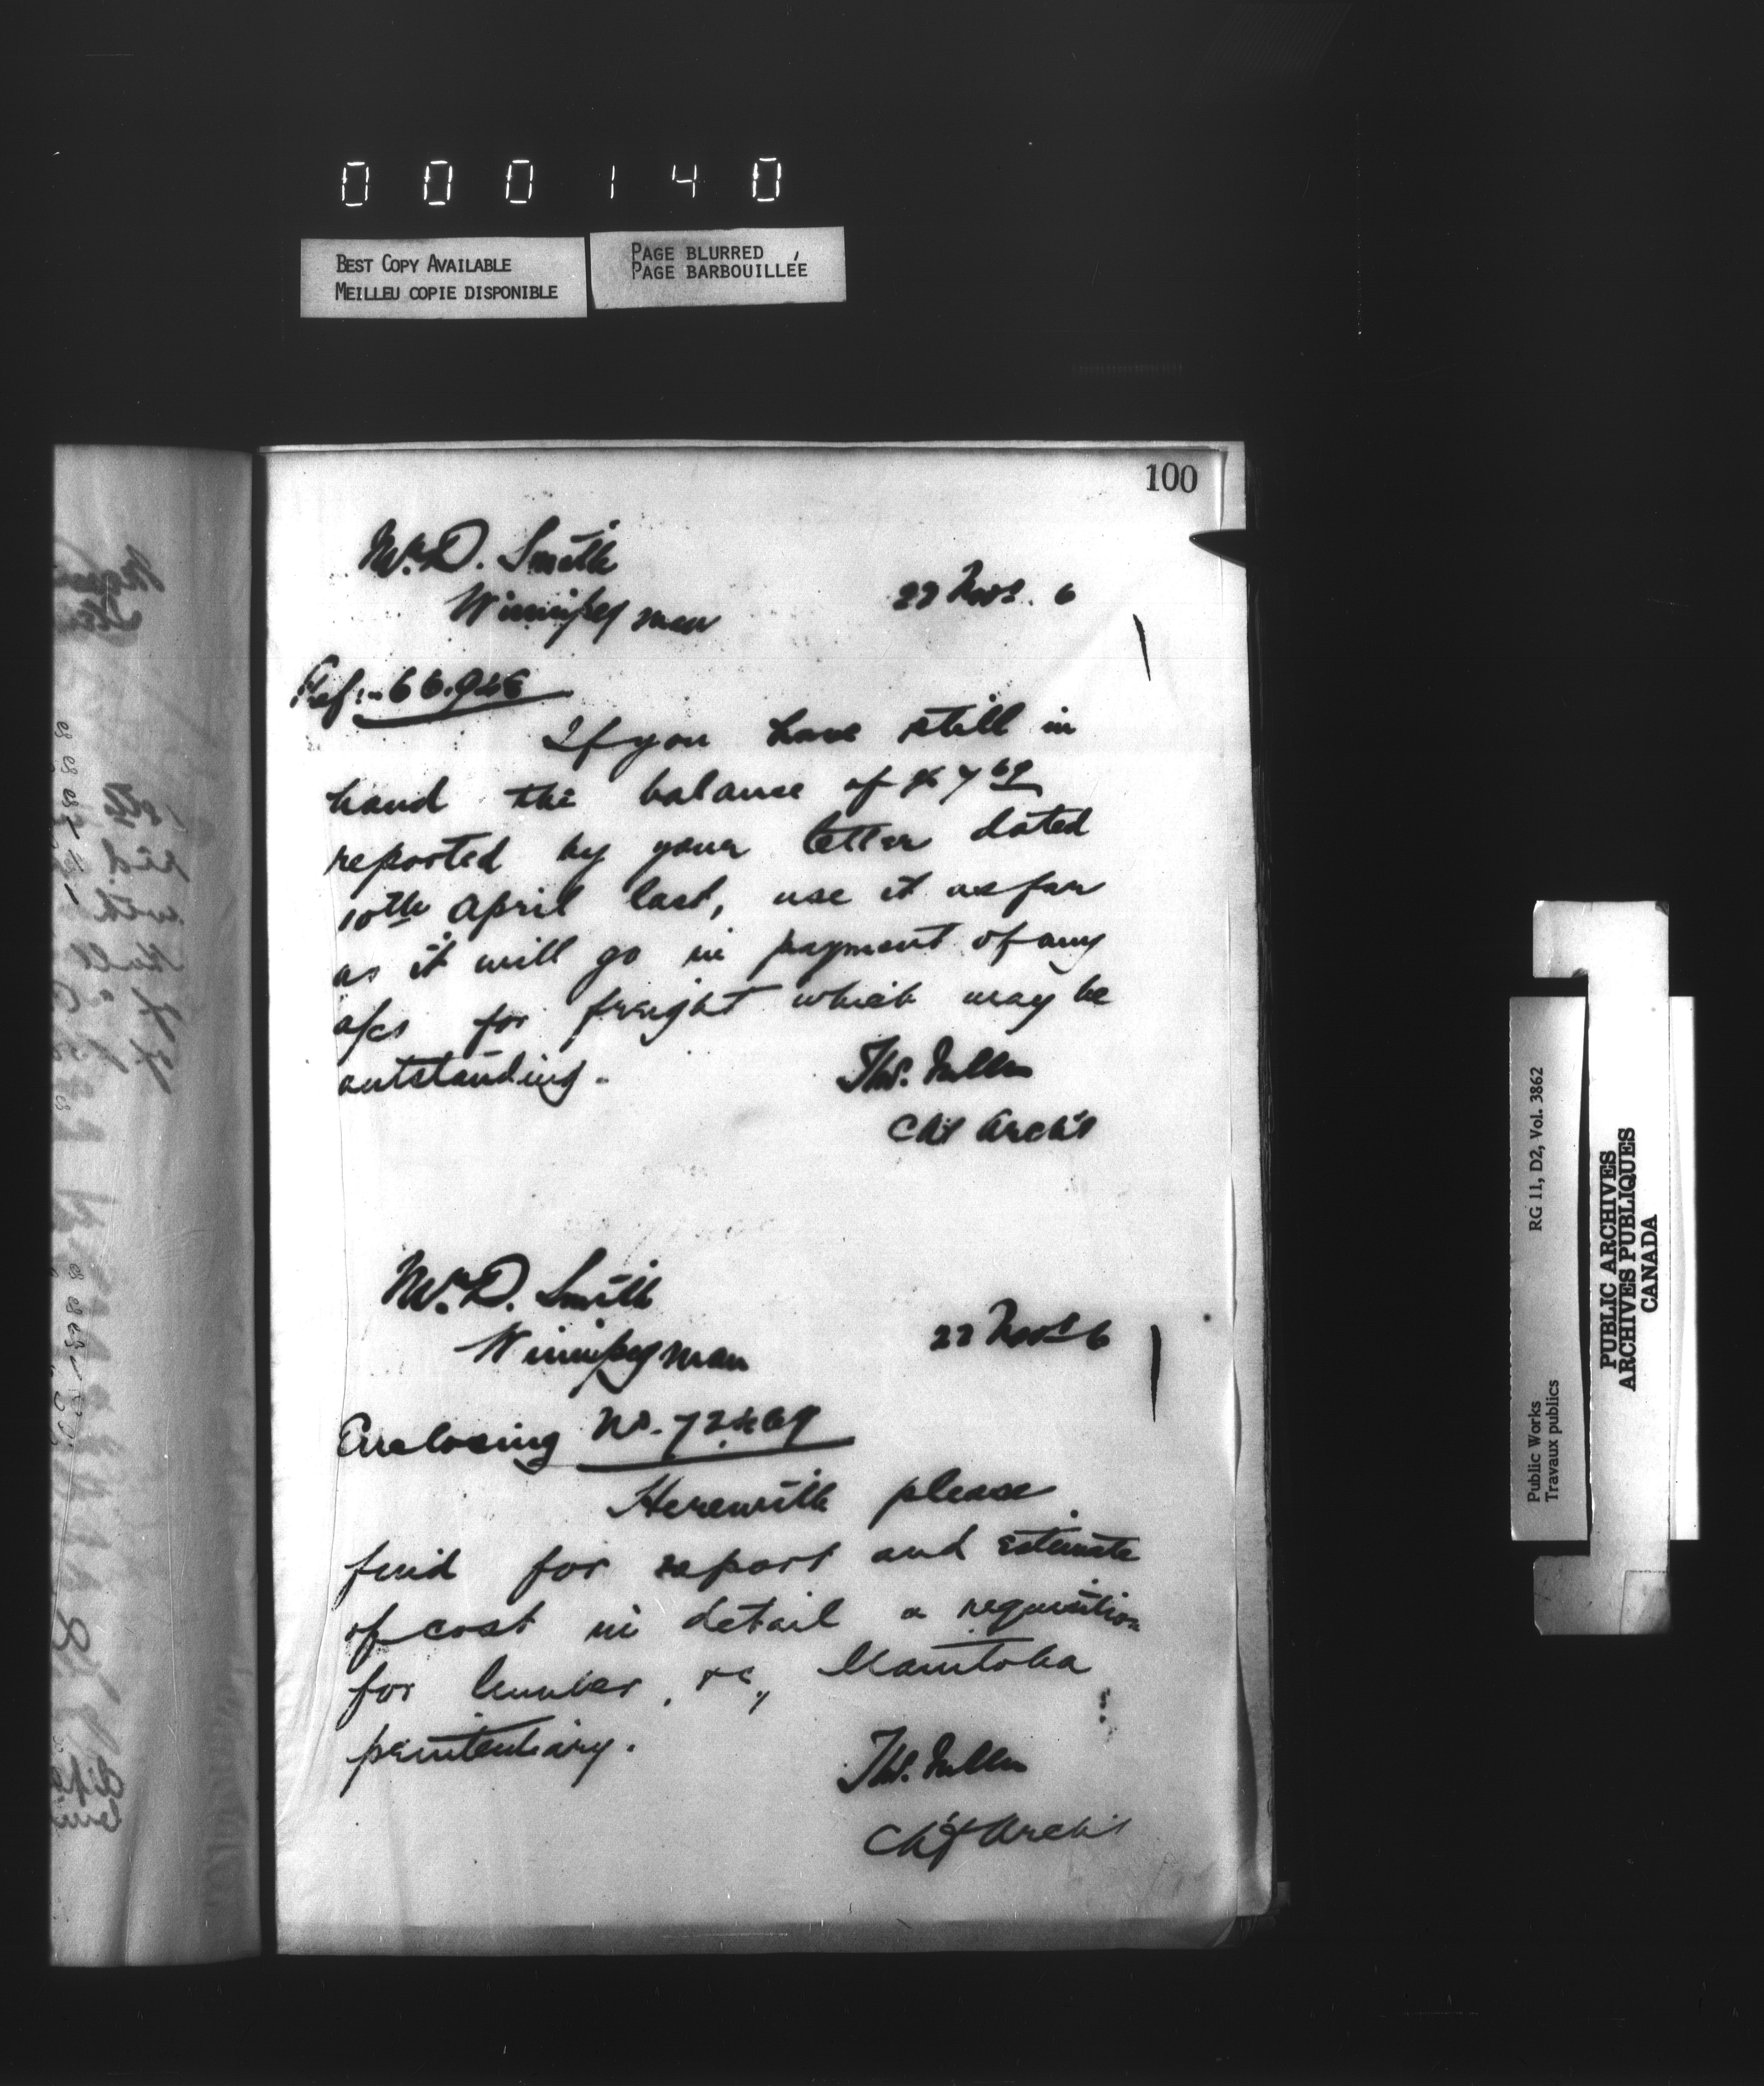 000140
BEST COPY AVAILABLE
MEILLEU COPIE DISPONIBLE
PAGE BLURRED
PAGE BARBOUILLÉE
100
Mr. D. Smith
Winnipeg Man
22 Novr. 6
Ref:
If you have still in
hand the balance of
reported by your letter dated
10th April last, use it as far
as it will go in payment of any
a/cs for freight which may be
outstanding.
Ths. Fuller
Chf Archt
Mr. D. Smith
Winnipeg Man
22 Novr 6
Enclosing No. 72469
Herewith please
find for report and estimate
of cost in detail a requisition
for lumber, &c., Manitoba
penitentiary.
Ths. Fuller
Chf Archt
Public Works
Travaux publics
RG 11, D2, Vol. 3862
PUBLIC ARCHIVES
ARCHIVES PUBLIQUES
CANADA